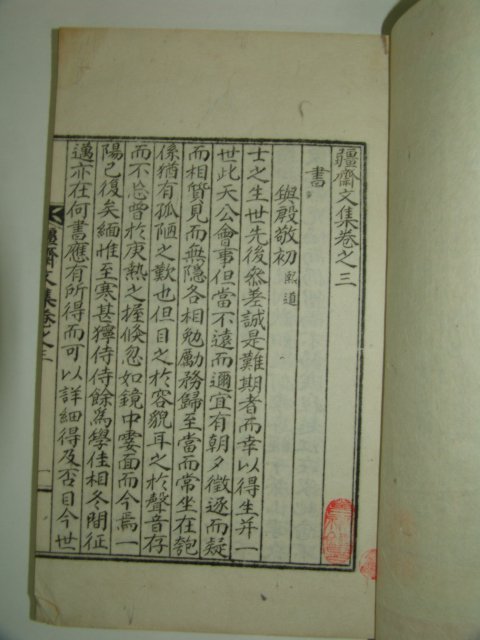 疆齋文集卷之三
書
與殷敬初 熙道
士之生世先後叅差誠是難期者而幸以得生并一
世此天公會事但當不遠而邇宜有朝夕徵逐而疑
而相質見而無隱各相勉勵務歸至當而常坐在匏
係猶有孤陋之歎也但目之於容貌耳之於聲音存
而不忘曾於庚熱之握倐忽如鏡中霎面而今焉一
陽已復矣緬惟至寒甚獰侍侍餘爲學佳相冬間征
邁亦在何書應有所得而可以詳細得及否目今世
疆齋文集卷之三 一